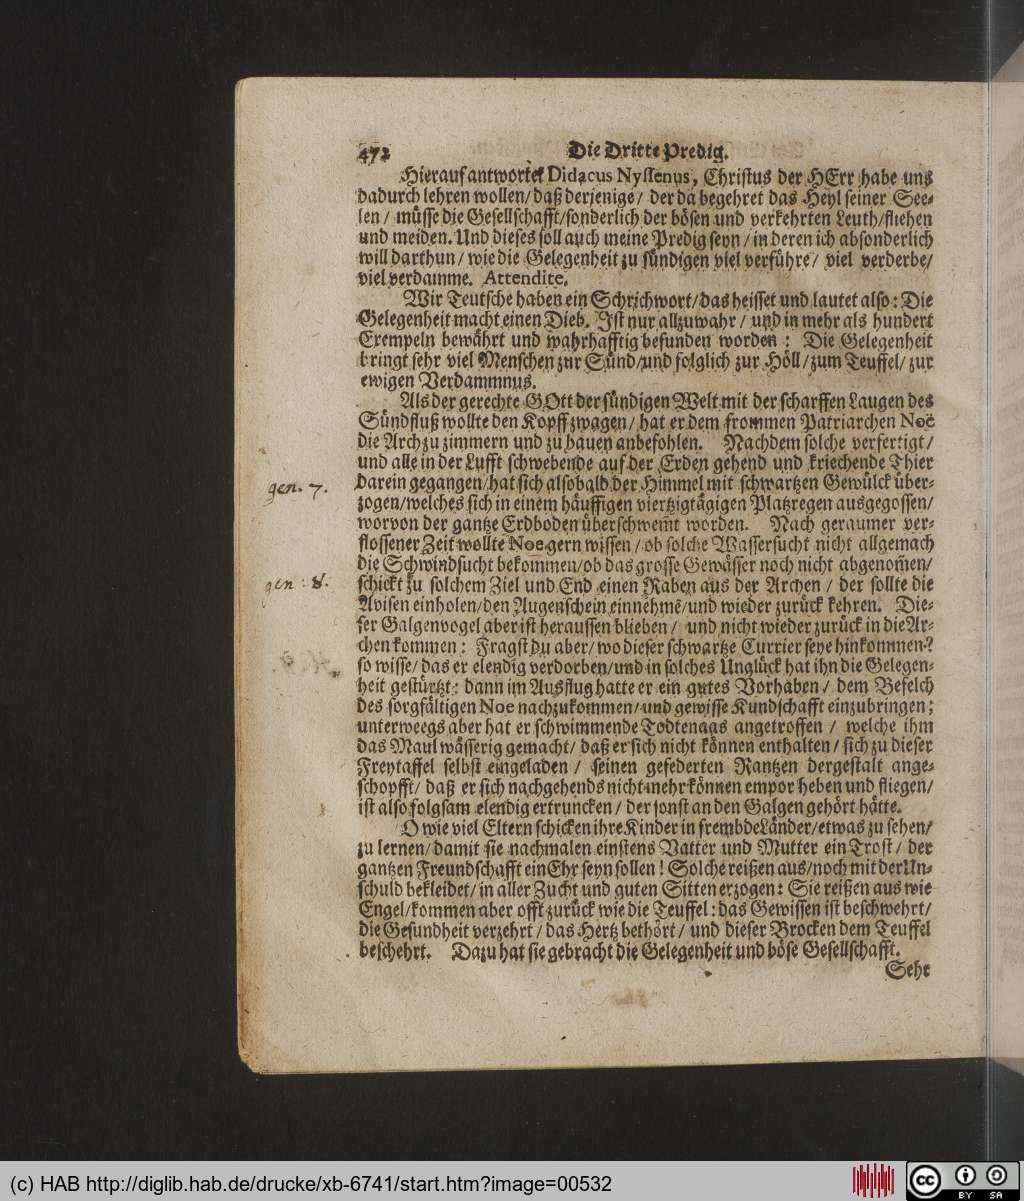 472
Die Dritte Predig.
Hierauf antwortet Didacus Nyssenus, Christus der HErr habe uns
dadurch lehren wollen/ daß derjenige/ der da begehret das Heyl seiner See-
len/ müsse die Gesellschafft/ sonderlich der bösen und verkehrten Leuth/ fliehen
und meiden. Und dieses soll auch meine Predig seyn/ in deren ich absonderlich
will darthun/ wie die Gelegenheit zu sündigen viel verführe/ viel verderbe/
viel verdamme. Attendite.
Wir Teutsche haben ein Schrichwort/ das heisset und lautet also: Die
Gelegenheit macht einen Dieb. Ist nur allzuwahr/ und in mehr als hundert
Exempeln bewährt und wahrhafftig befunden worden: Die Gelegenheit
bringt sehr viel Menschen zur Sünd/ und folglich zur Höll/ zum Teuffel/ zur
ewigen Verdammnus.
Als der gerechte GOtt der sündigen Welt mit der scharffen Laugen des
Sündfluß wollte den Kopff zwagen/ hat er dem frommen Patriarchen Noë
die Arch zu zimmern und zu hauen anbefohlen. Nachdem solche verfertigt/
und alle in der Lufft schwebende auf der Erden gehend und kriechende Thier
gen. 7.
darein gegangen/ hat sich alsobald der Himmel mit schwartzen Gewülck über-
zogen/ welches sich in einem häuffigen viertzigtägigen Platzregen ausgegossen/
worvon der gantze Erdboden überschwem̃t worden. Nach geraumer ver-
flossener Zeit wollte Noe gern wissen/ ob solche Wassersucht nicht allgemach
die Schwindsucht bekommen/ ob das grosse Gewässer noch nicht abgenom̃en/
gen: 8.
schickt zu solchem Ziel und End einen Raben aus der Archen/ der sollte die
Avisen einholen/ den Augenschein einnehmẽ/ und wieder zurück kehren. Die-
ser Galgenvogel aber ist heraussen blieben/ und nicht wieder zurück in die Ar-
chen kommen: Fragst du aber/ wo dieser schwartze Currier seye hinkommen?
so wisse/ das er elendig verdorben/ und in solches Unglück hat ihn die Gelegen-
heit gestürtzt: dann im Ausflug hatte er ein gutes Vorhaben/ dem Befelch
des sorgfältigen Noe nachzukommen/ und gewisse Kundschafft einzubringen;
unterweegs aber hat er schwimmende Todtenaas angetroffen/ welche ihm
das Maul wässerig gemacht/ daß er sich nicht können enthalten/ sich zu dieser
Freytaffel selbst eingeladen/ seinen gefederten Rantzen dergestalt ange-
schopfft/ daß er sich nachgehends nicht mehr können empor heben und fliegen/
ist also folgsam elendig ertruncken/ der sonst an den Galgen gehört hätte.
O wie viel Eltern schicken ihre Kinder in frembde Länder/ etwas zu sehen/
zu lernen/ damit sie nachmalen einstens Vatter und Mutter ein Trost/ der
gantzen Freundschafft ein Ehr seyn sollen! Solche reißen aus/ noch mit der Un-
schuld bekleidet/ in aller Zucht und guten Sitten erzogen: Sie reißen aus wie
Engel/ kommen aber offt zurück wie die Teuffel: das Gewissen ist beschwehrt/
die Gesundheit verzehrt/ das Hertz bethört/ und dieser Brocken dem Teuffel
beschehrt. Dazu hat sie gebracht die Gelegenheit und böse Gesellschafft.
Sehr
(c) HAB http://diglib.hab.de/drucke/xb-6741/start.htm?image=00532
cc BY SA